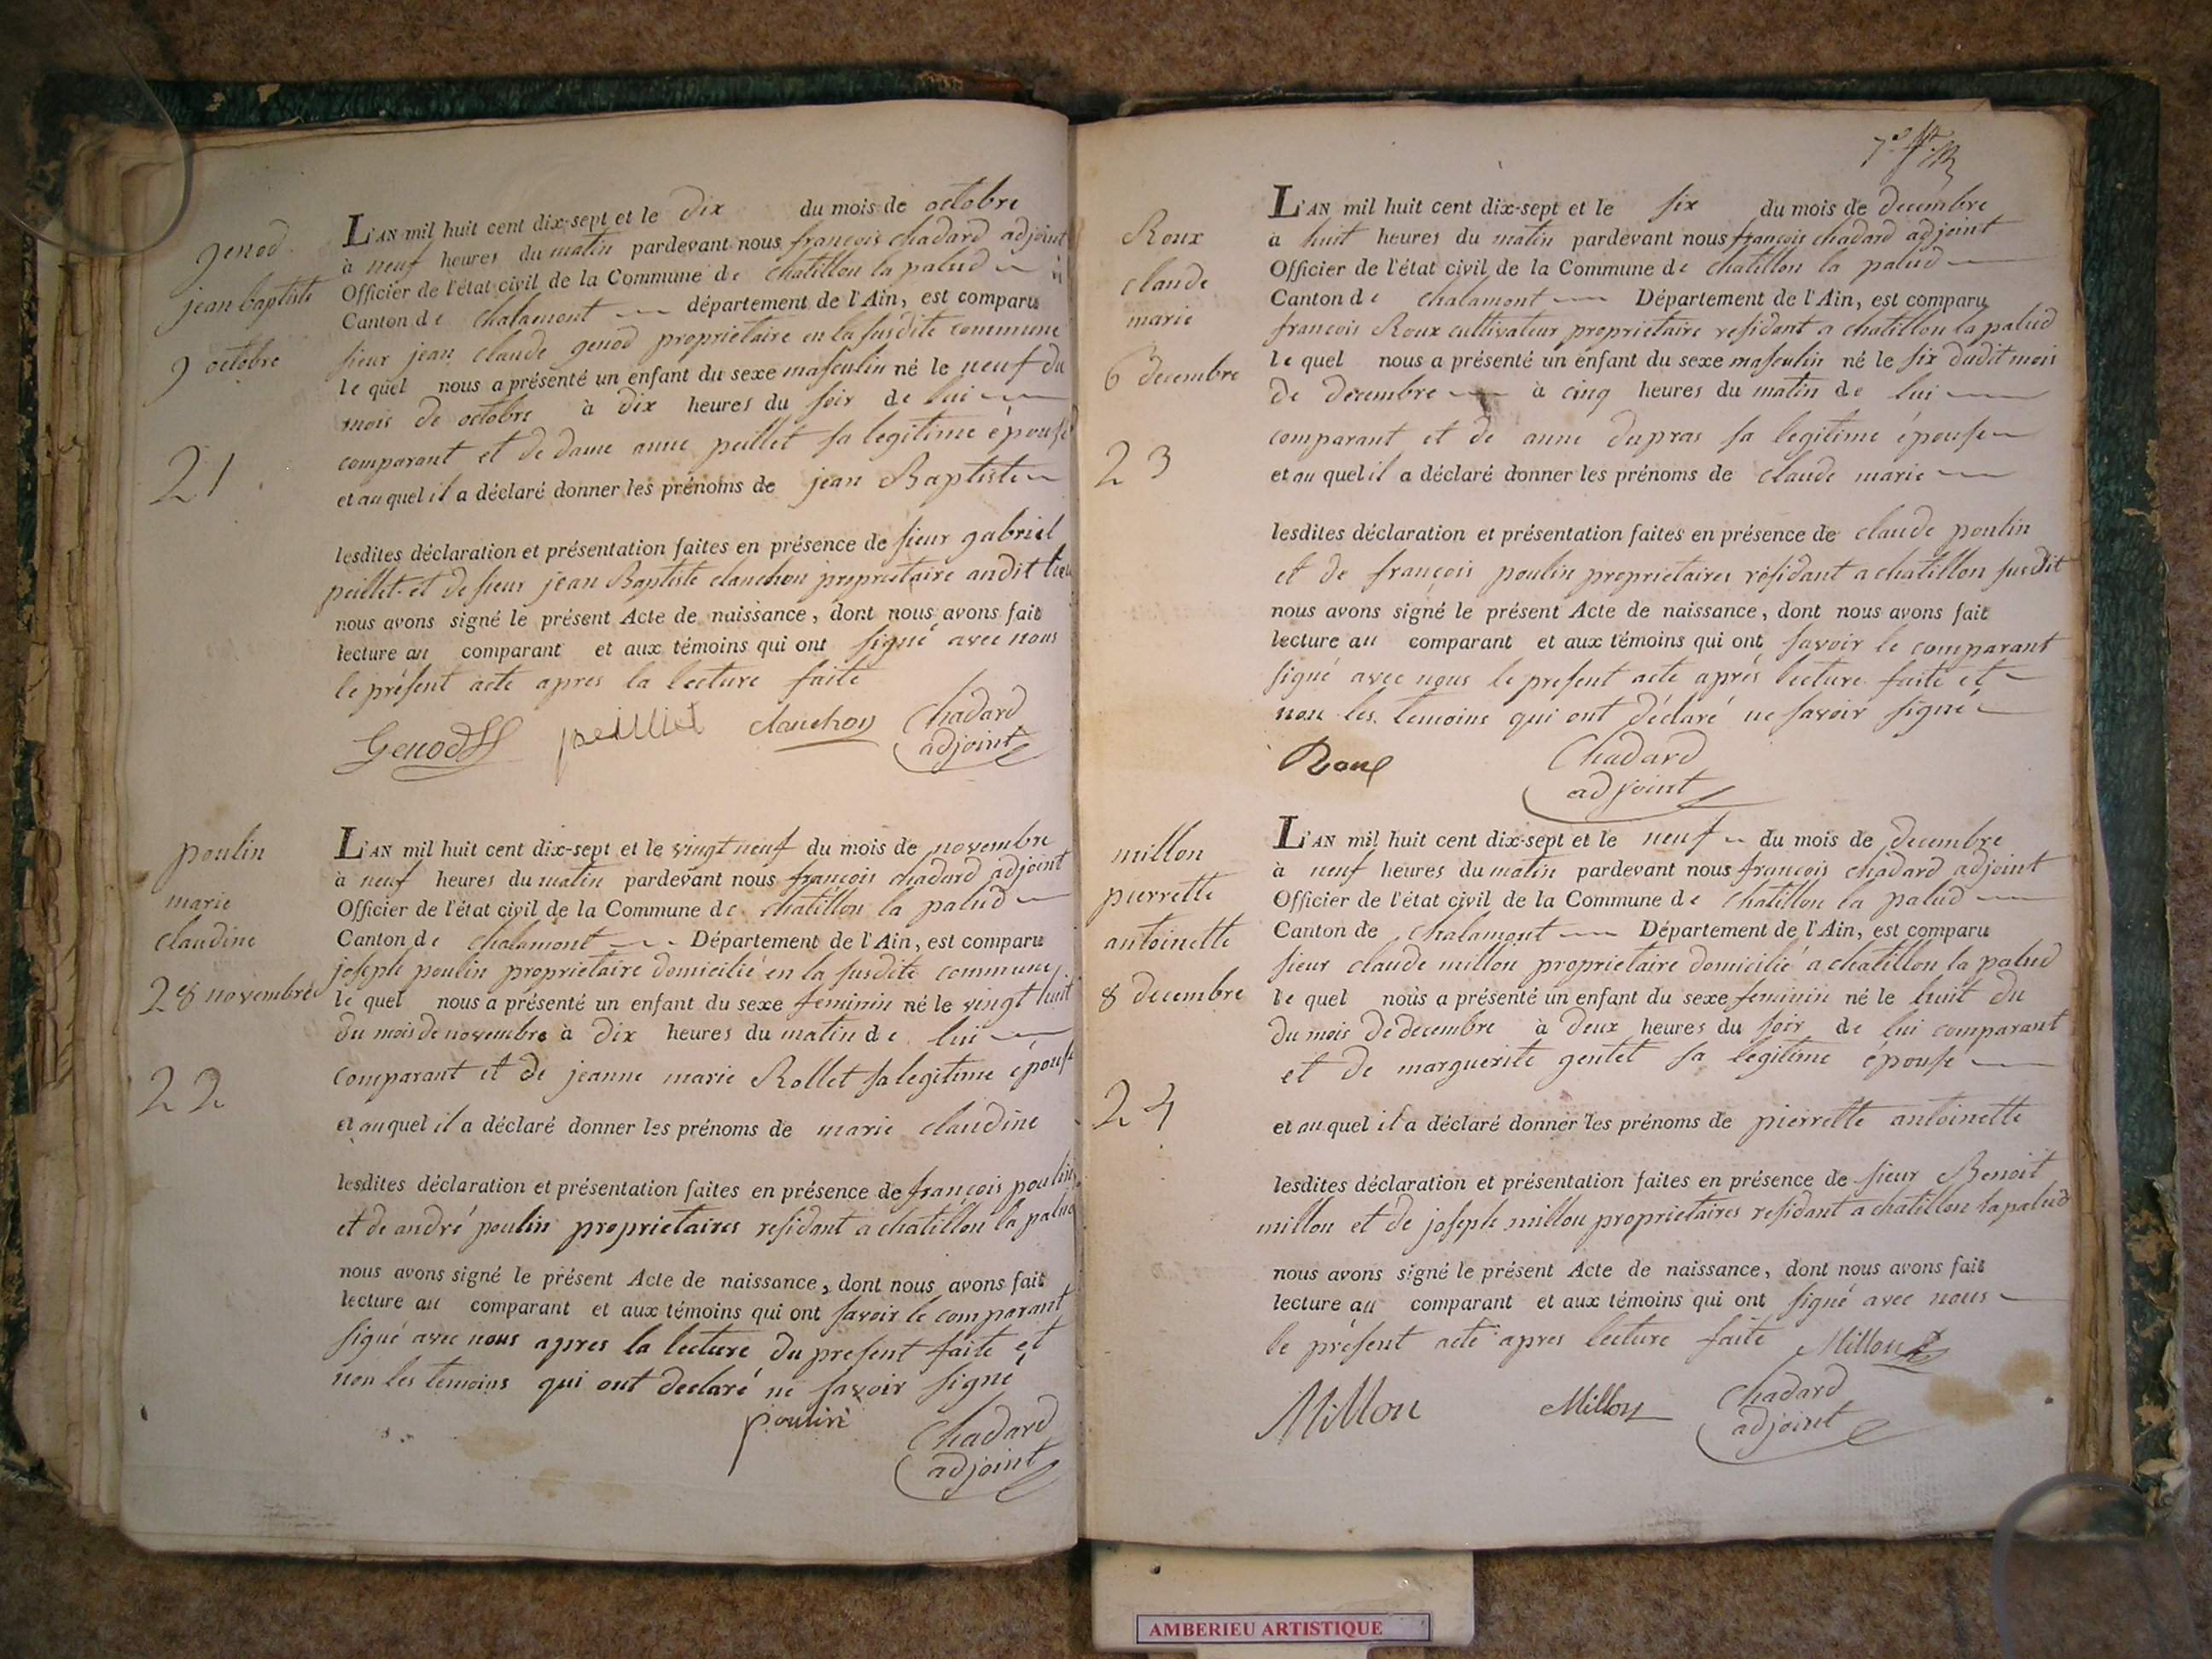 genod
jean baptiste
9 octobre
21
L'AN mil huit cent dix-sept et le dix du mois de octobre
à neuf heures du matin pardevant nous françois chadard adjoint
Officier de l'état civil de la Commune de chatillon la palud
Canton de chalamont département de l'Ain, est comparu
sieur jean claude genod proprietaire en la susdite commune
lequel nous a présenté un enfant du sexe masculin né le neuf du
mois de octobre à dix heures du soir de lui
comparant et de dame anne peillet sa legitime épouse
et auquel il a déclaré donner les prénoms de jean Baptiste
lesdites déclaration et présentation faites en présence de sieur gabriel
peillet et de sieur jean Baptiste clanchon proprietaire audit lieu
nous avons signé le présent Acte de naissance, dont nous avons fait
lecture au comparant et aux témoins qui ont signé avec nous
le présent acte apres la lecture faite
Genod peilliet clanchon Chadard
adjoint
poulin
marie
claudine
28 novembre
22
L'AN mil huit cent dix-sept et le vingt neuf du mois de novembre
à neuf heures du matin pardevant nous françois chadard adjoint
Officier de l'état civil de la Commune de chatillon la palud
Canton de chalamont Département de l'Ain, est comparu
joseph poulin proprietaire domicilié en la susdite commune
lequel nous a présenté un enfant du sexe feminin né le vingt huit
du mois de novembre à dix heures du matin de lui
comparant et de jeanne marie Rollet sa legitime épouse
et auquel il a déclaré donner les prénoms de marie claudine
lesdites déclaration et présentation faites en présence de françois poulin
et de andré poulin proprietaires residant a chatillon la palud
nous avons signé le présent Acte de naissance, dont nous avons fait
lecture au comparant et aux témoins qui ont savoir le comparant
signé avec nous apres la lecture du present faite et
non les temoins qui ont declaré ne savoir signé
poulin Chadard
adjoint
Roux
claude
marie
6 decembre
23
L'AN mil huit cent dix-sept et le six du mois de decembre
à huit heures du matin pardevant nous françois chadard adjoint
Officier de l'état civil de la Commune de chatillon la palud
Canton de chalamont Département de l'Ain, est comparu
françois Roux cultivateur proprietaire residant a chatillon la palud
lequel nous a présenté un enfant du sexe masculin né le six dudit mois
de decembre à cinq heures du matin de lui
comparant et de anne dupras sa legitime épouse
et auquel il a déclaré donner les prénoms de claude marie
lesdites déclaration et présentation faites en présence de claude poulin
et de françois poulin proprietaires résidant a chatillon susdit
nous avons signé le présent Acte de naissance, dont nous avons fait
lecture au comparant et aux témoins qui ont savoir le comparant
signé avec nous le present acte aprés lecture faite et
non les temoins qui ont déclaré ne savoir signé
Roux Chadard
adjoint
millon
pierrette
antoinette
8 decembre
24
L'AN mil huit cent dix-sept et le neuf du mois de decembre
à neuf heures du matin pardevant nous françois chadard adjoint
Officier de l'état civil de la Commune de chatillon la palud
Canton de chalamont Département de l'Ain, est comparu
sieur claude millon proprietaire domicilié a chatillon la palud
lequel nous a présenté un enfant du sexe feminin né le huit du
du mois de decembre à deux heures du soir de lui comparant
et de marguerite gentet sa legitime épouse
et auquel il a déclaré donner les prénoms de pierrette antoinette
lesdites déclaration et présentation faites en présence de sieur Benoit
millon et de joseph millon proprietaires residant a chatillon la palud
nous avons signé le présent Acte de naissance, dont nous avons fait
lecture au comparant et aux témoins qui ont signé avec nous
le présent acte apres lecture faite Millon
Millon Millon Chadard
adjoint
AMBERIEU ARTISTIQUE